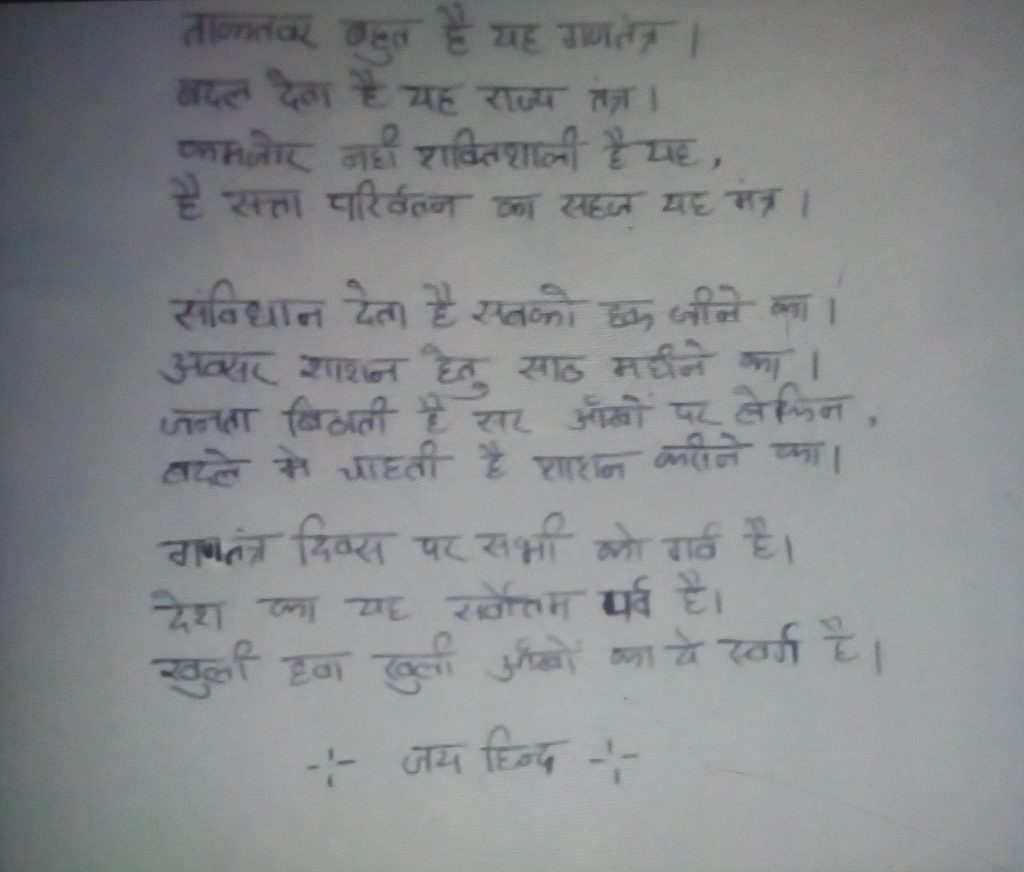 ताकतवर बहुत है यह गणतंत्र ।
बदल देता है यह राज्य तंत्र ।
कमजोर नहीं शक्तिशाली है यह ,
है सत्ता परिर्वतन का सहज यह मंत्र ।
संविधान देता है सबको हक जीने का ।
अवसर शाशन हेतु साठ महीने का ।
जनता बिठाती है सर आँखों पर लेकिन ,
बदले में चाहती है शाशन करीने का ।
गणतंत्र दिवस पर सभी को गर्व है।
देश का यह सर्वोत्तम पर्व है।
खुली हवा खुली आँखों का ये स्वर्ग है ।
-:- जय हिन्द -:-